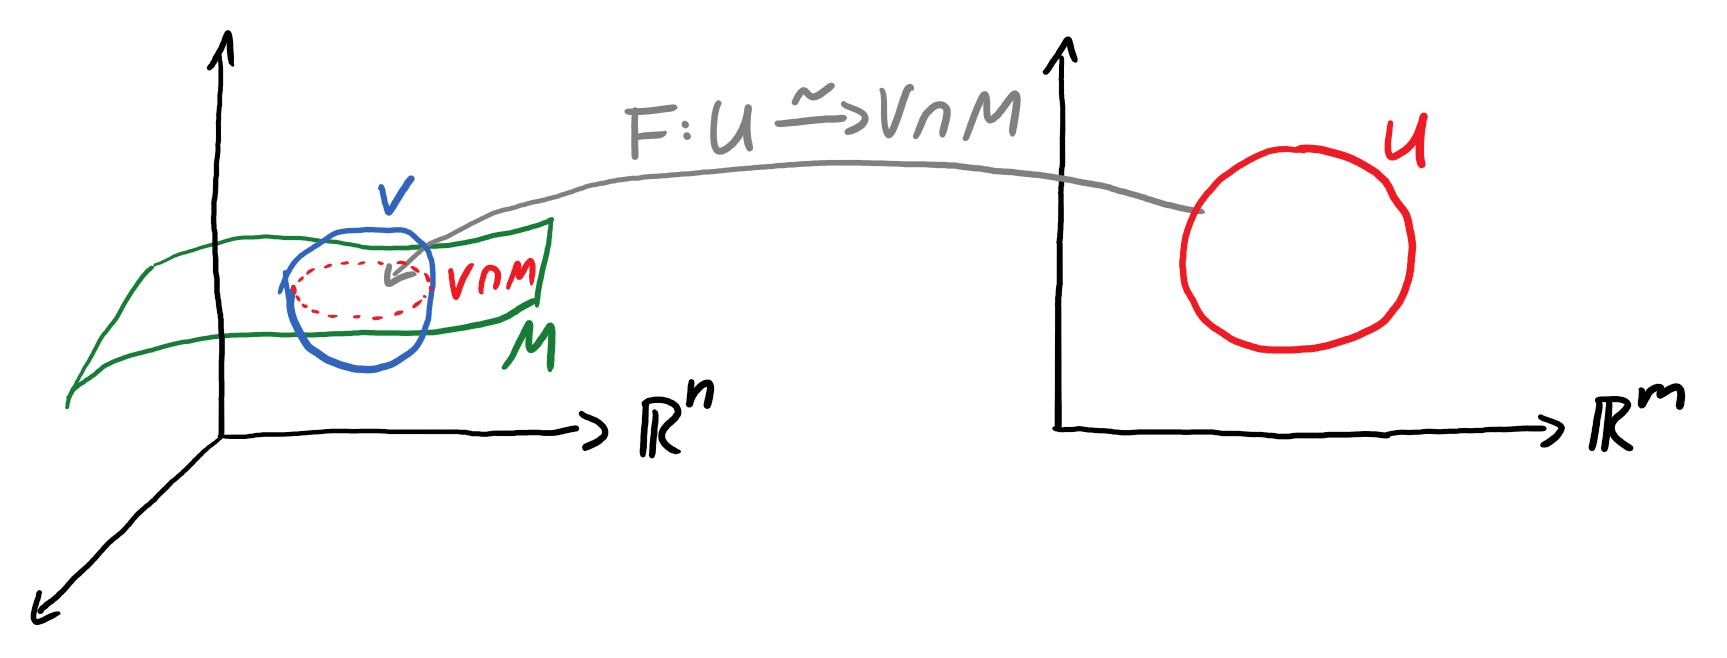 F: U ⥲ V∩M
U
V
V∩M
M
ℝⁿ
ℝᵐ